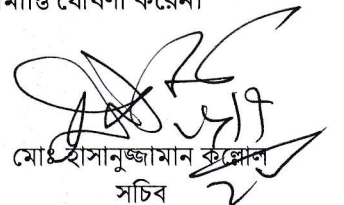 ঘোষণা করেন।
মোঃ হাসানুজ্জামান কল্লোল
সচিব